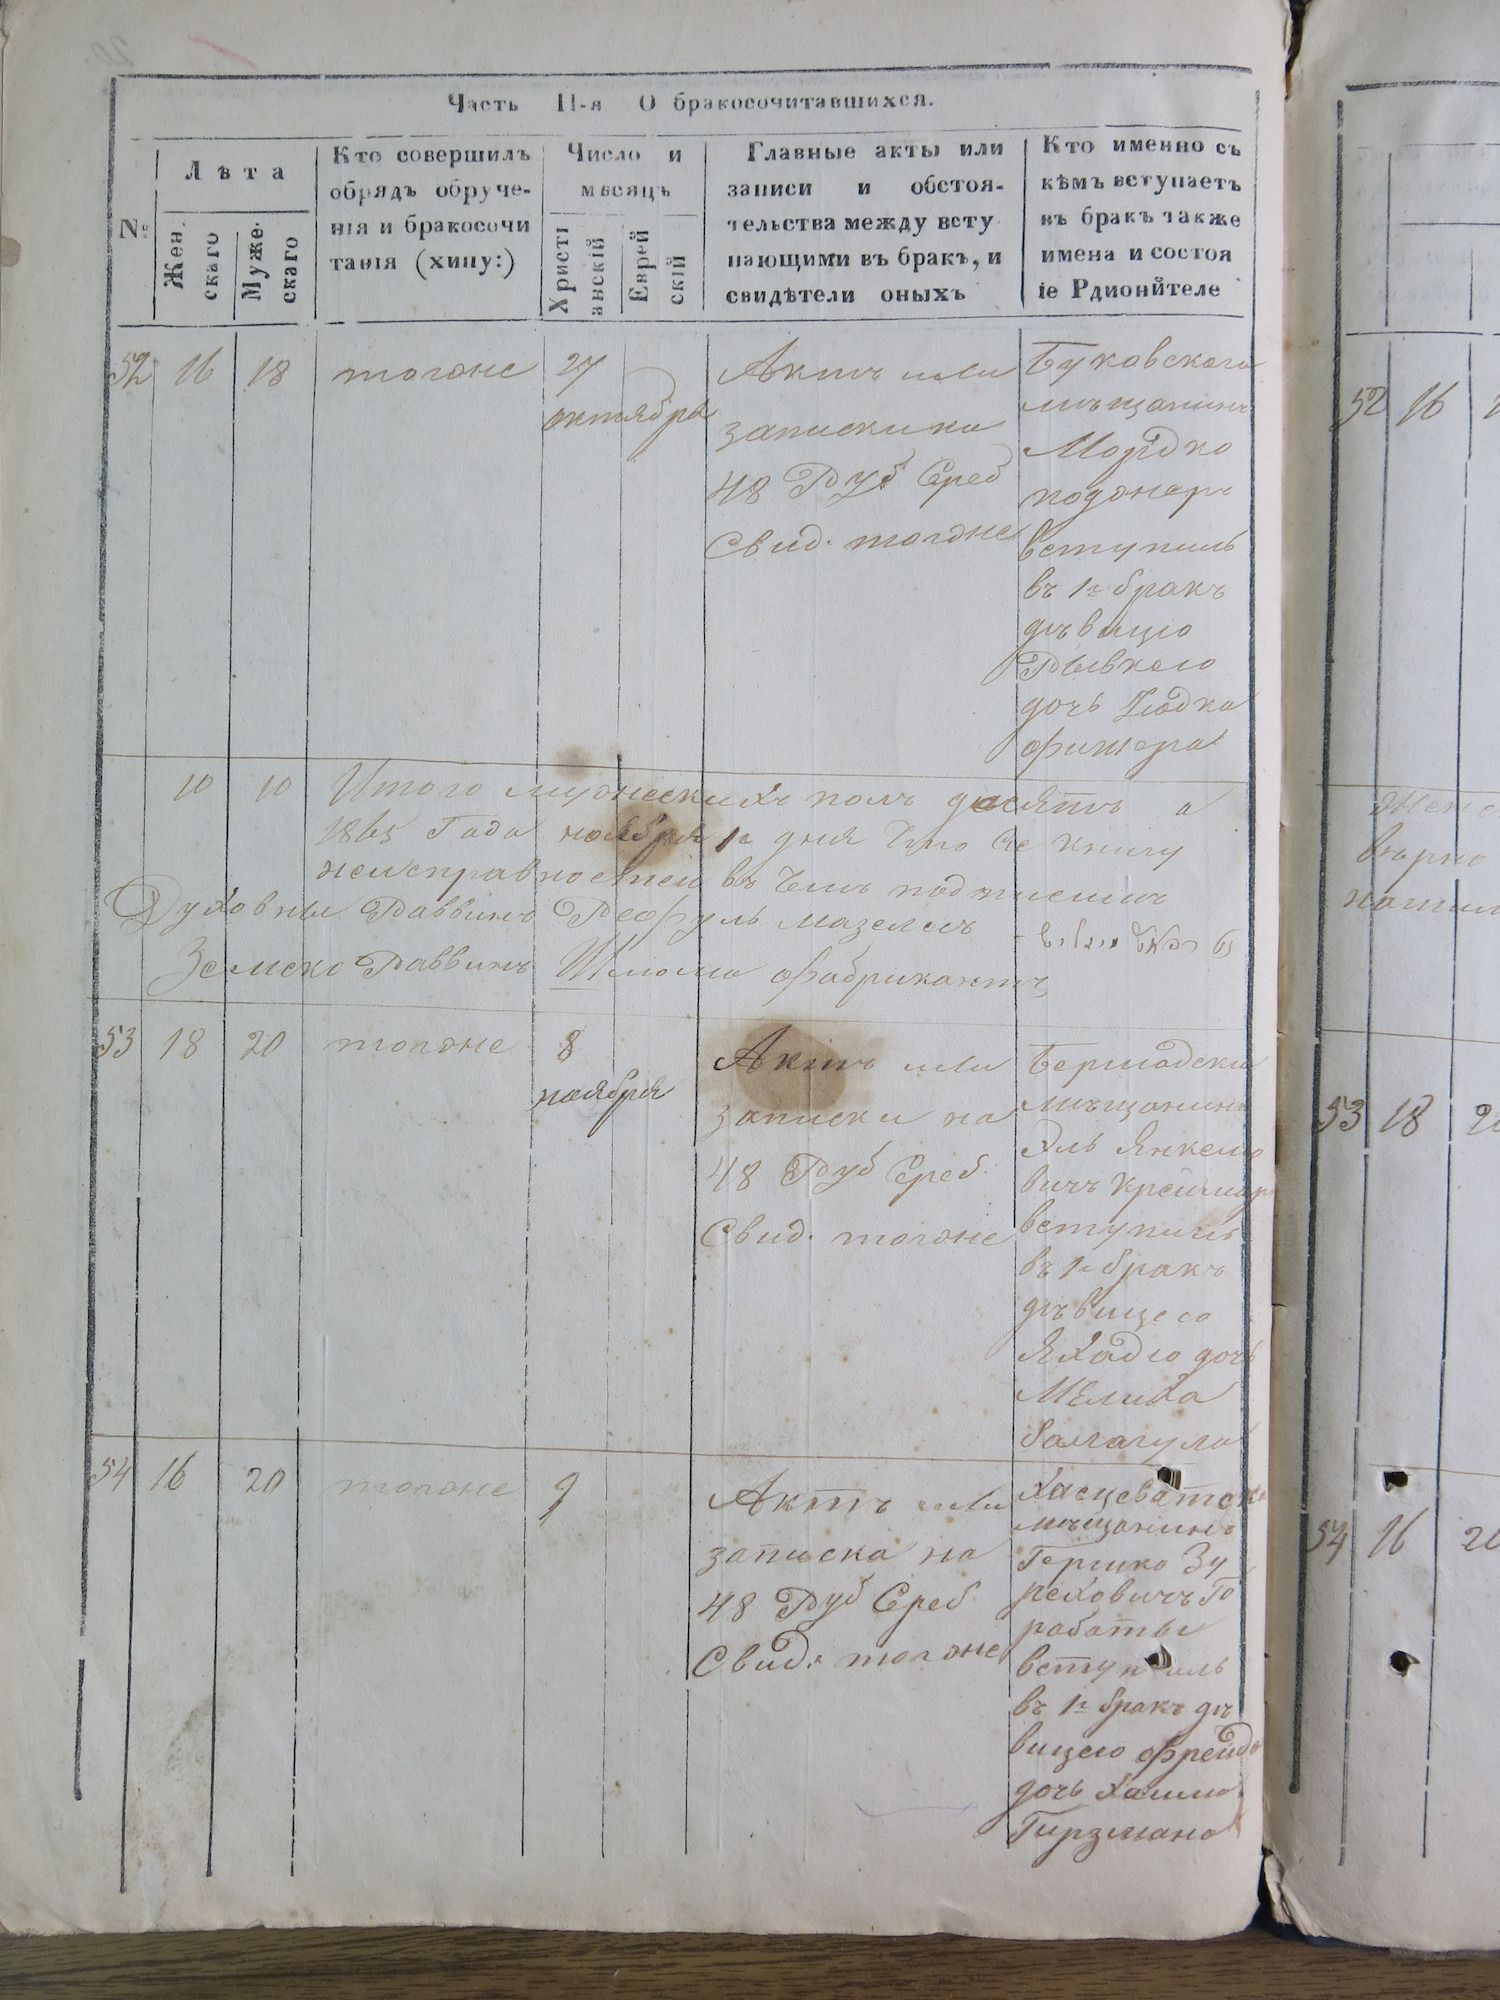 Часть II-я О бракосочитавшихся.
№
Лѣта
Женскаго
Мужескаго
Кто совершилъ
обрядъ обруче-
нія и бракосочи
танія (хипу:)
Число и
мѣсяцъ
Христіанскій
Еврейскій
Главные акты или
записи и обстоя-
тельства между всту
пающими въ бракъ, и
свидѣтели оныхъ
Кто именно съ
кѣмъ вступаетъ
въ бракъ также
имена и состоя
іе Рдионйтеле
52 16 18 тогоже 27
октября
Актъ или
записки на
48 Руб Среб
Свид. тогоже
Буковского
мѣщанинъ
Мордко
вступилъ
въ 1й бракъ
дѣвицю
Рывкою
дочь Іодка
фишера
10 10 Итого мужескихъ полъ десять а
1865 Года ноября 1 дня Что Сіе книгу
неисправностей въ Чемъ подписемъ
Духовны Раввинъ Рефуль мазелсъ
Земско Раввинъ Шлома фабрикантъ
53 18 20 тогоже 8
ноября
Актъ или
записки на
48 Руб Среб.
Свид. тогоже
Бершадски
мѣщанинъ
Эль Янкелю
вичъ Крейшмар
вступилъ
въ 1й бракъ
дѣвицею
Яхадю дочь
54 16 20 тогоже 9
Актъ или
записка на
48 Руб Среб
Свид. тогоже
Хасцеватски
мѣщанинъ
Гершко Зу
реховичъ Го
рабаты
вступилъ
въ 1й бракъ дѣ
вицею Фрейдо
дочь Хаима
Гирзмано
52 16
вѣрно
53 18 2
54 16 20